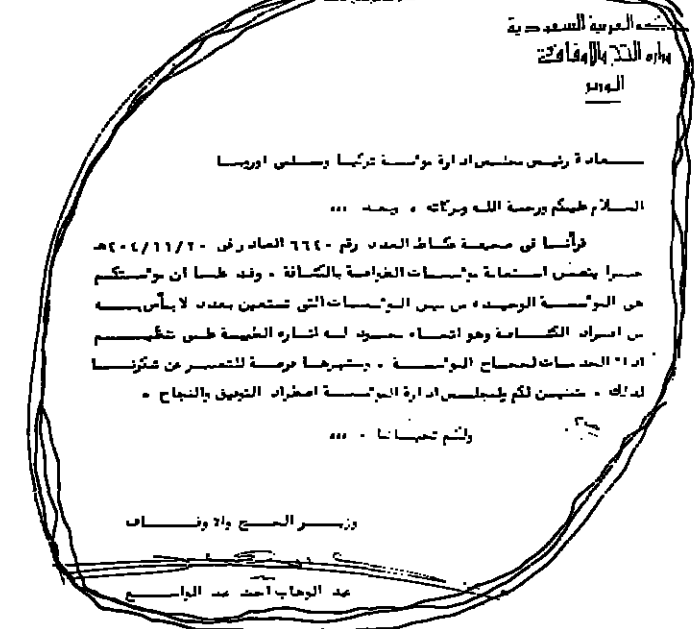 العربية السعودية
وزارة الحج والأوقاف
الوزير
سعادة رئيس مجلس ادارة مؤسسة تركيا ومسلمي اوروبا
السلام عليكم ورحمة الله وبركاته ، وبعد ...
قرأنا في صحيفة عكاظ العدد رقم ٦٦٤٠ الصادر في
استعانة مؤسسات الطوافة بالكشافة ، وقد علمنا ان مؤسستكم
هي المؤسسة الوحيدة من بين المؤسسات التي تستعين بعدد لا بأس به
من افراد الكشافة وهو اتجاه محمود له اثاره الطيبة على تنظيم
اداء الخدمات لحجاج المؤسسة ، فرصة للتعبير عن شكرنا
لذلك ، متمنين لكم ولمجلس ادارة المؤسسة اضطراد التوفيق والنجاح ،
ولكم تحياتنا ، ...
وزير الحج والاوقاف
عبد الوهاب أحمد عبد الواسع